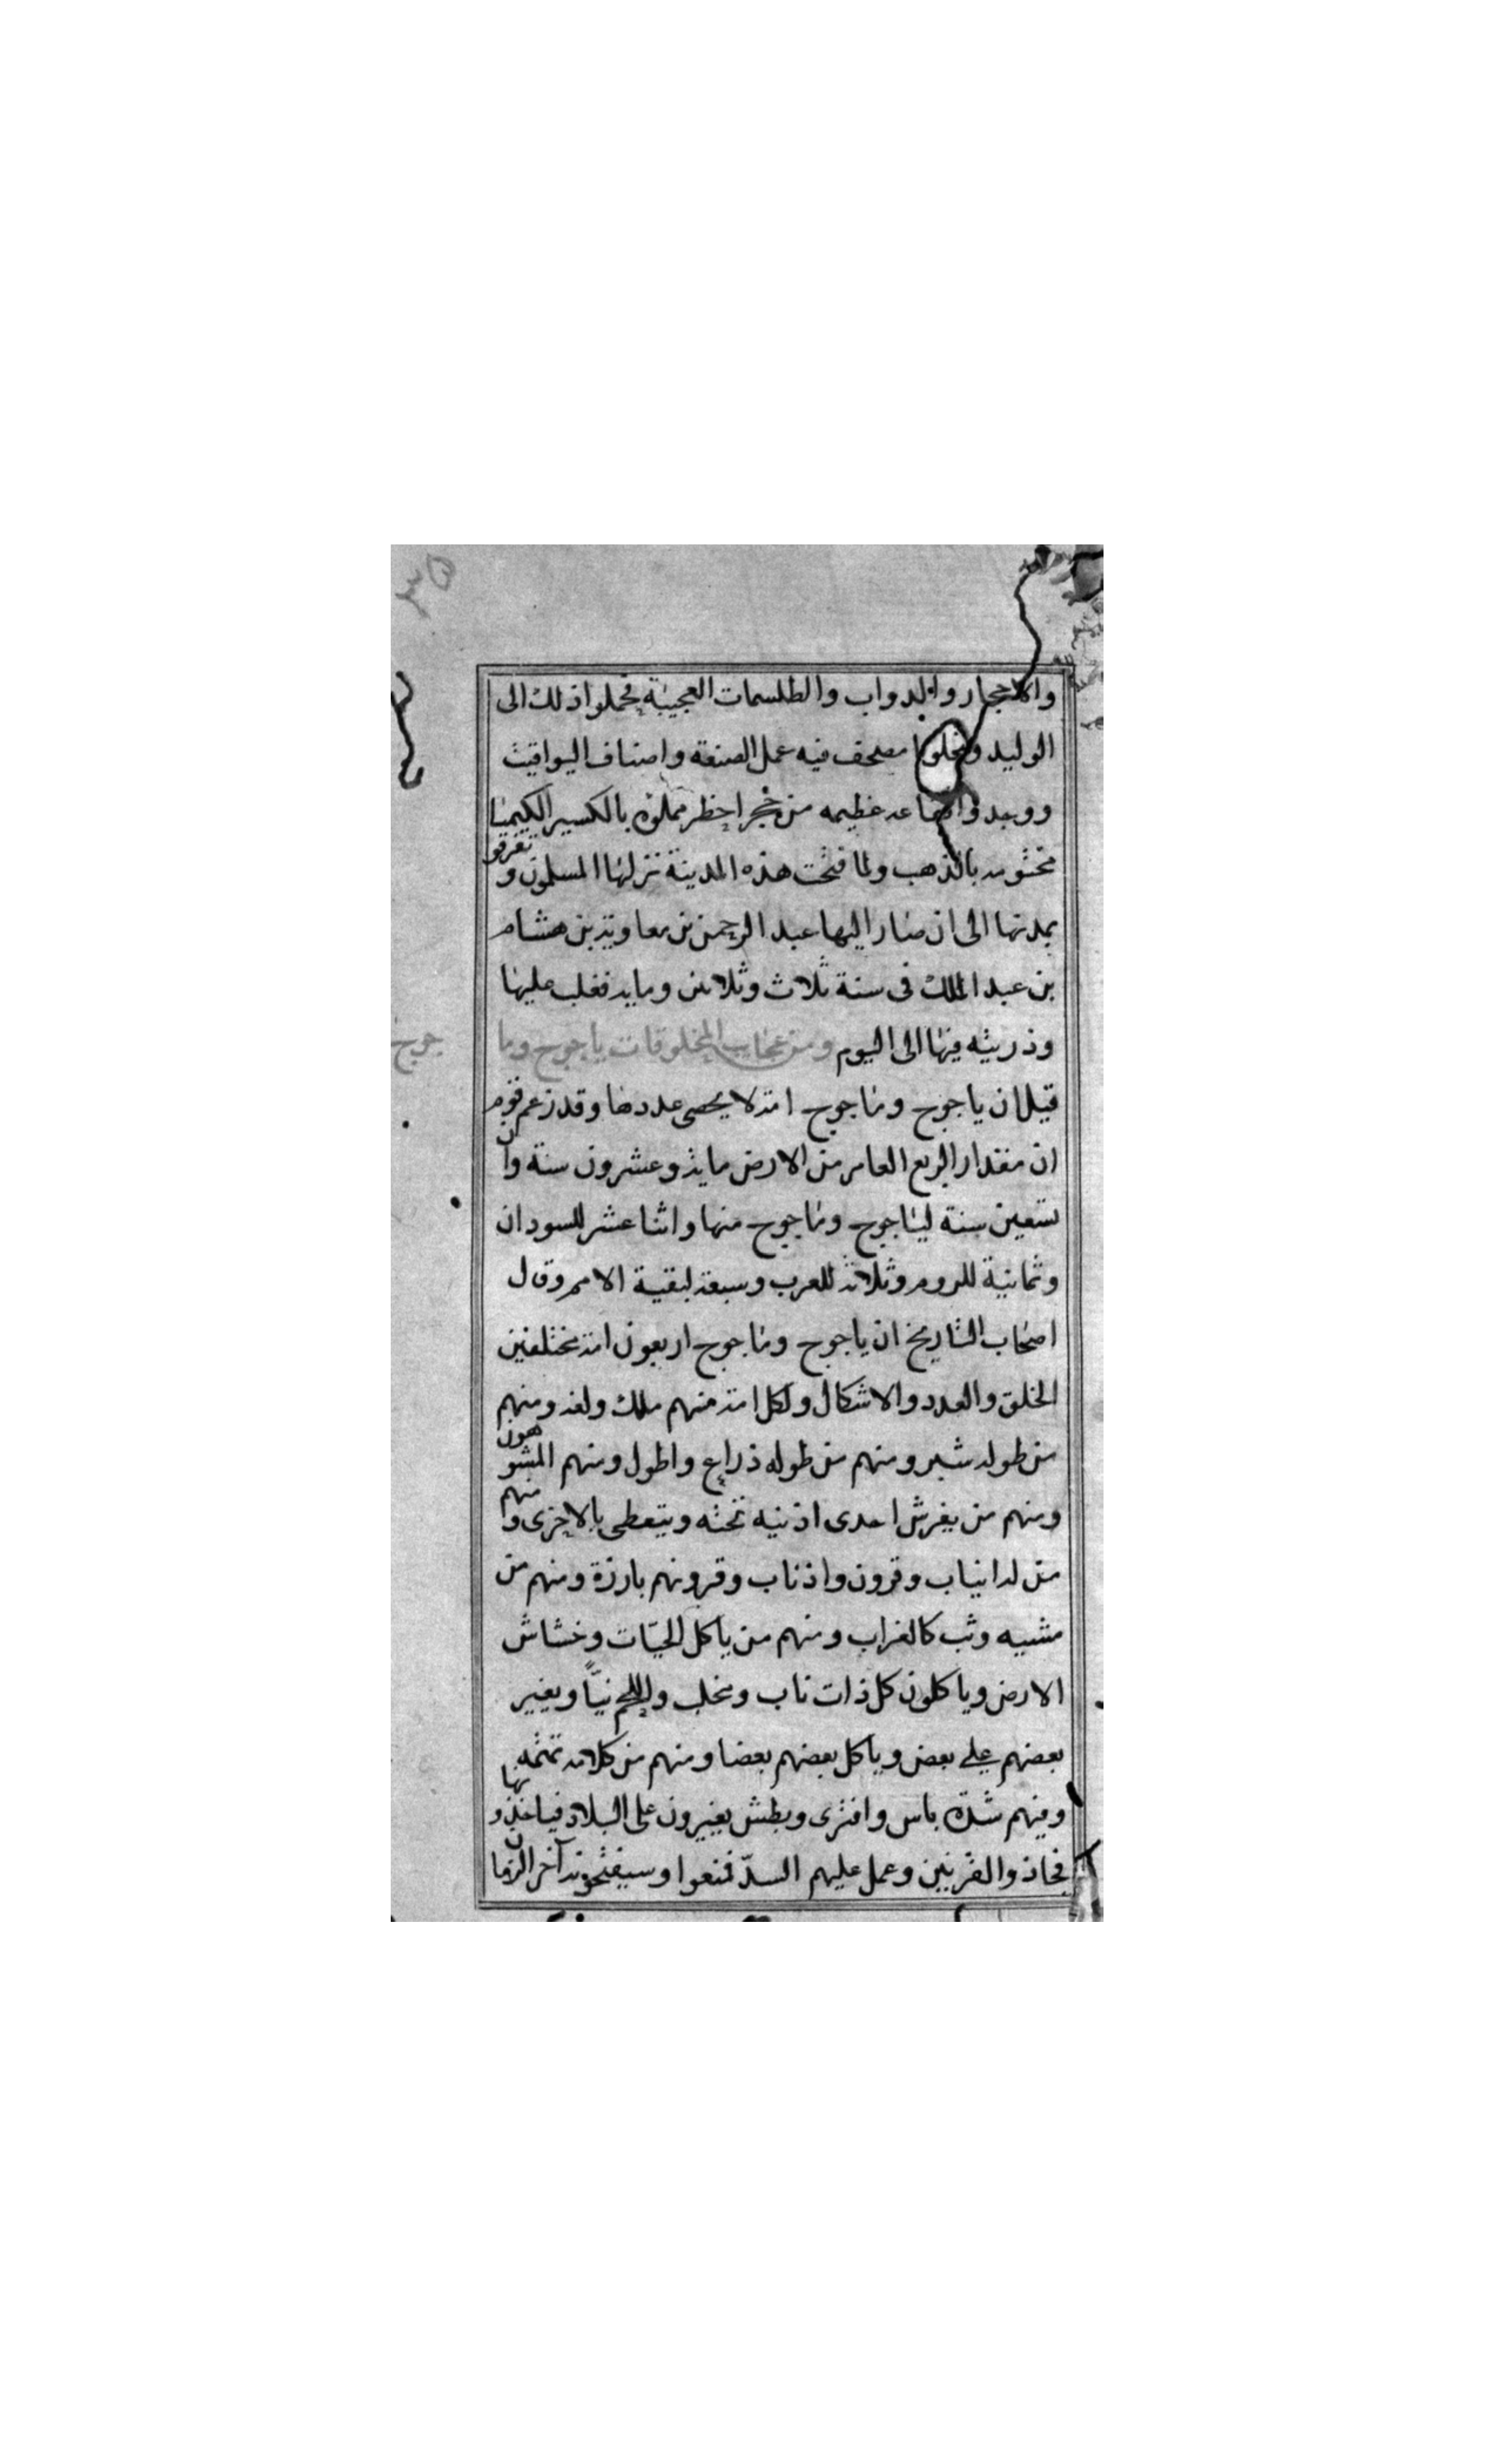 ٣٥
والاحجار والدواب والطلسمات العجيبة فحملوا ذلك الى
الوليد وحملوا مصحف فيه عمل الصنعة واصناف اليواقيت
ووجدوا عظيمه من حجر اخظر مملوة بالكسير الكيميا
مختومه بالذهب ولما فتحت هذه المدينة نزلها المسلمون وتفرقو
بمدنها الى ان صار اليها عبد الرحمن بن معاوية بن هشام
بن عبد الملك فى سنة ثلاث وثلاثين ومايه فغلب عليها
وذريته فيها الى اليوم ومن عجايب المخلوقات ياجوج وما جوج
قيل ان ياجوج وماجوج امة لا يحصى عددها وقد زعم قوم
ان مقدار الربع العامر من الارض ماية وعشرون سنة وان
تسعين سنة لياجوج وماجوج منها واثنا عشر للسودان
وثمانية للروم وثلاثة للعرب وسبعة لبقية الامم وقال
اصحاب التاريخ ان ياجوج وماجوج اربعون امة مختلفين
الخلق والعدد والاشكال ولكل امة منهم ملك ولغه ومنهم
من طوله شبر ومنهم من طوله ذراع واطول ومنهم المشوهون
ومنهم من يفرش احدى اذنيه تحته ويتعطى بالاخرى ومنهم
من له انياب وقرون واذناب وقرونهم بارزة ومنهم من
مشيه وثب كالغراب ومنهم من ياكل الحيّات وخشاش
الارض وياكلون كل ذات ناب ومخلب واللحم نيًّا ويغير
بعضهم على بعض وياكل بعضهم بعضا ومنهم من كلامه تمتمه
وفيهم شدة باس وافترى وبطش يغيرون على البلاد فياخذونها
فجا ذو القرنين وعمل عليهم السدّ فمنعوا وسيفتحونه آخر الزمان